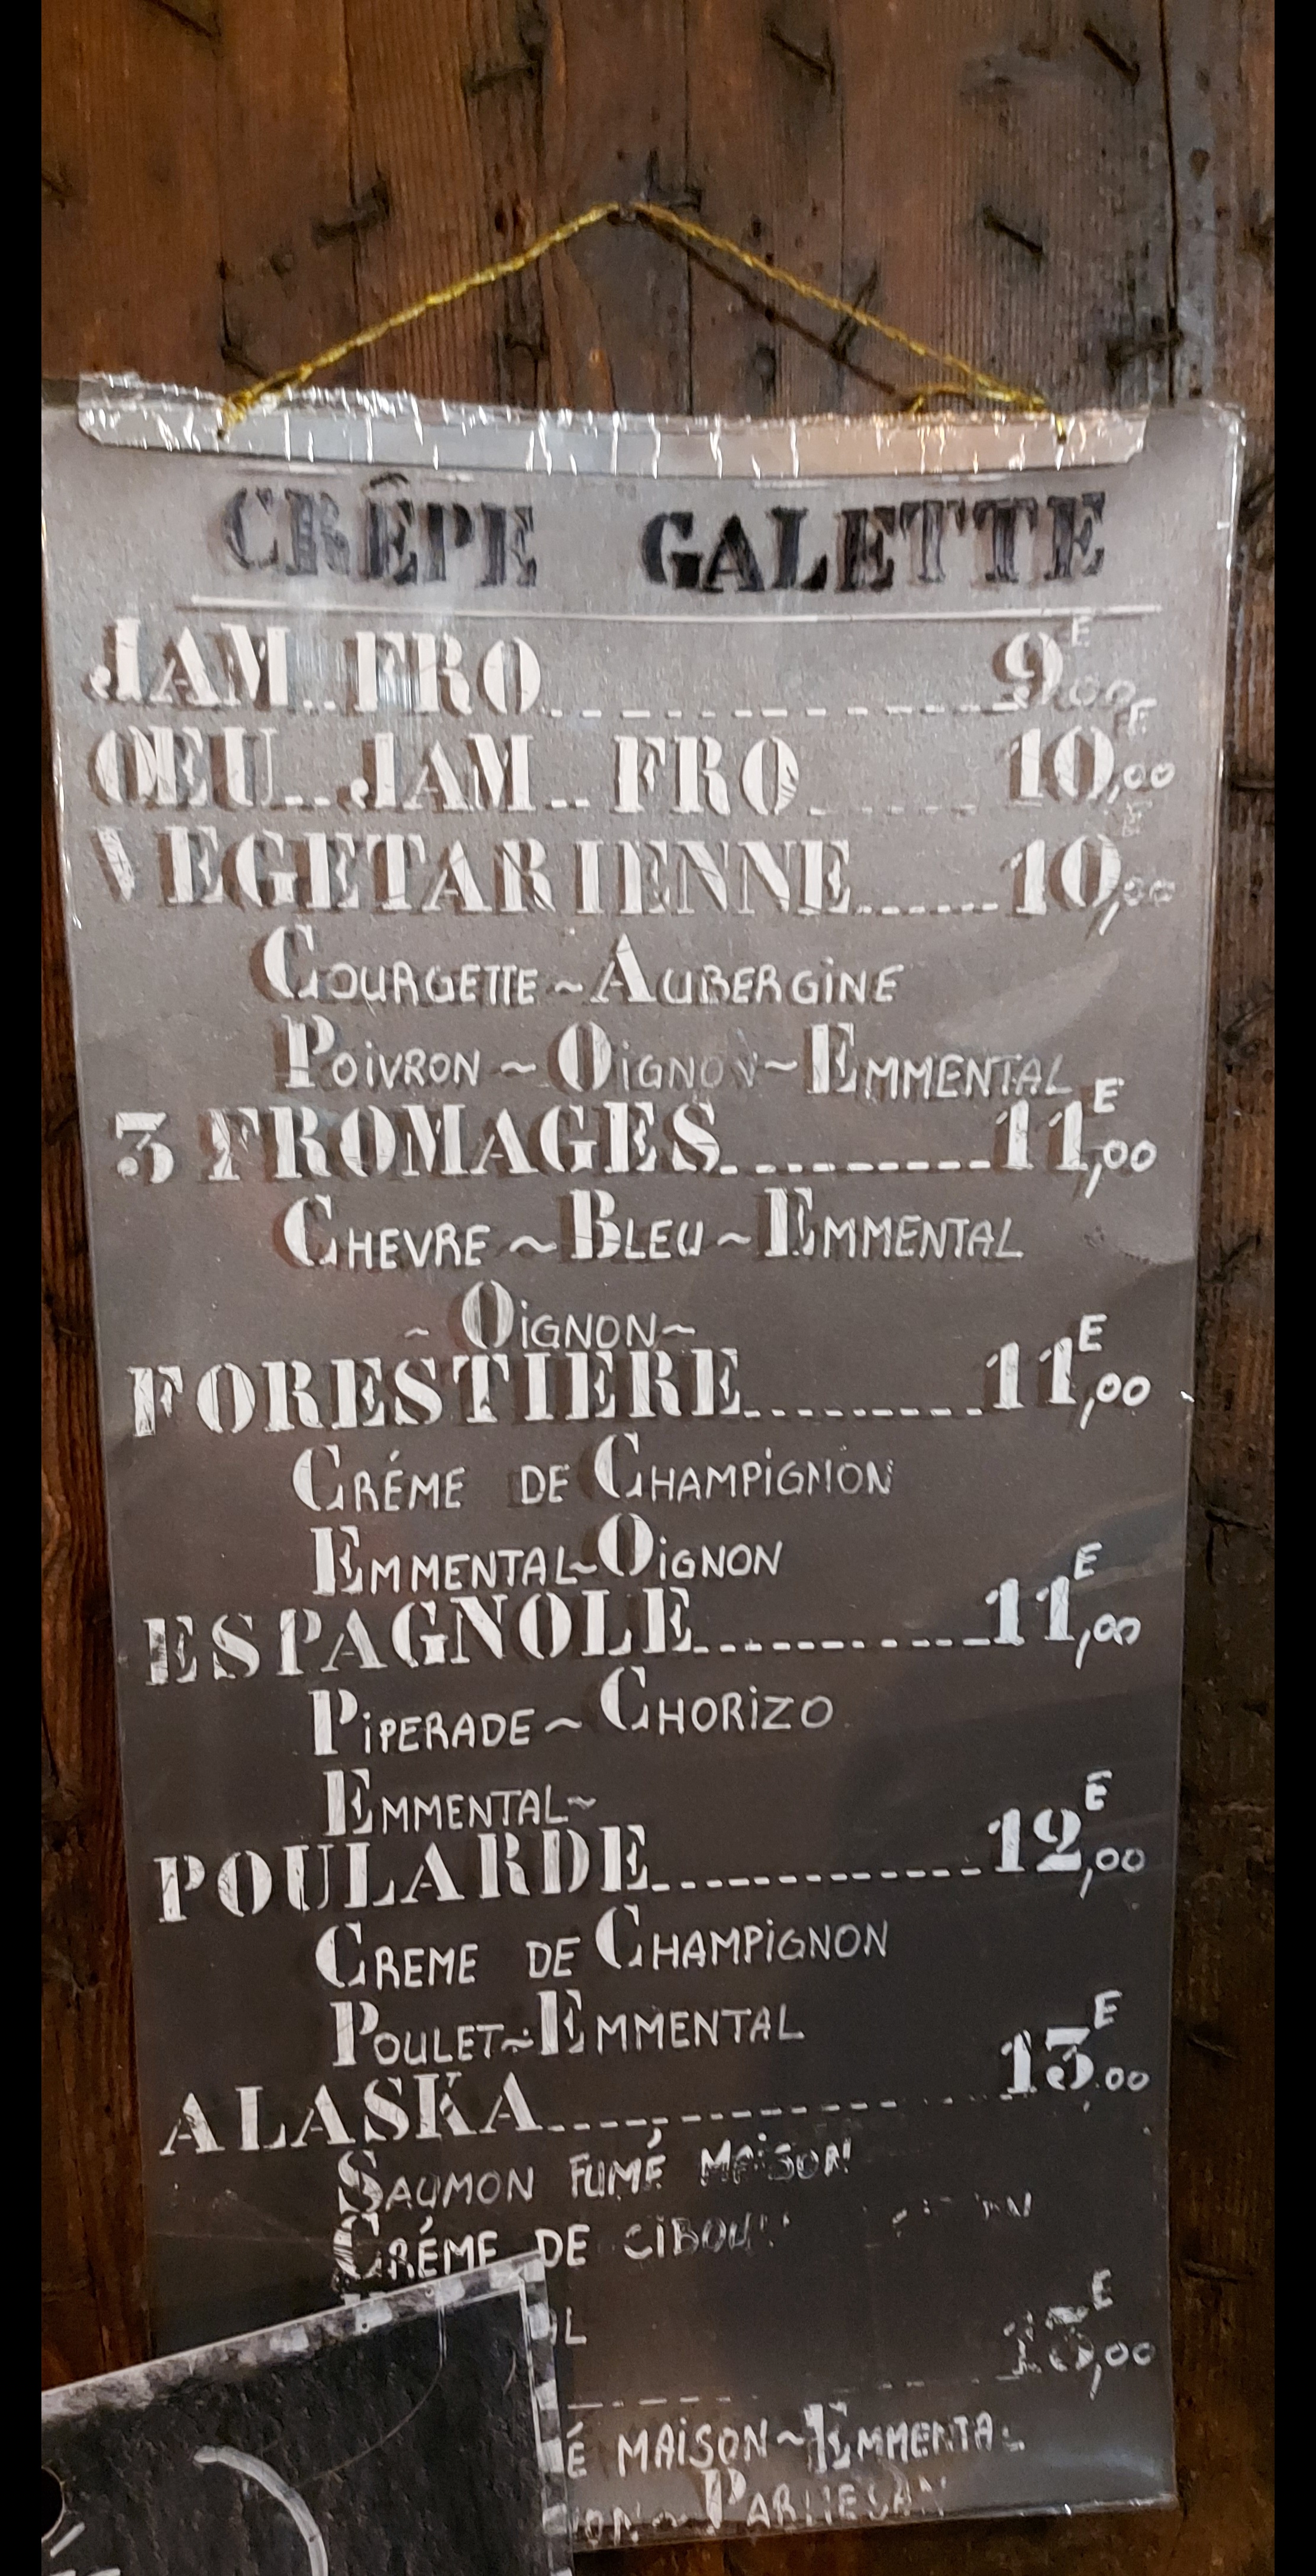 CRÊPE GALETTE
JAM..FRO 9,00 E
OEU..JAM..FRO 10,00 E
VEGETARIENNE 10,00 E
COURGETTE ~ AUBERGINE
POIVRON ~ OIGNON ~ EMMENTAL
3 FROMAGES 11,00 E
CHEVRE ~ BLEU ~ EMMENTAL
~ OIGNON ~
FORESTIERE 11,00 E
CRÉME DE CHAMPIGNON
EMMENTAL ~ OIGNON
ESPAGNOLE 11,00 E
PIPERADE ~ CHORIZO
EMMENTAL ~
POULARDE 12,00 E
CREME DE CHAMPIGNON
POULET ~ EMMENTAL
ALASKA 13.00 E
SAUMON FUMÉ MAISON
CRÉME DE
13,00 E
MAISON ~ EMMENTAL
~ PARMESAN